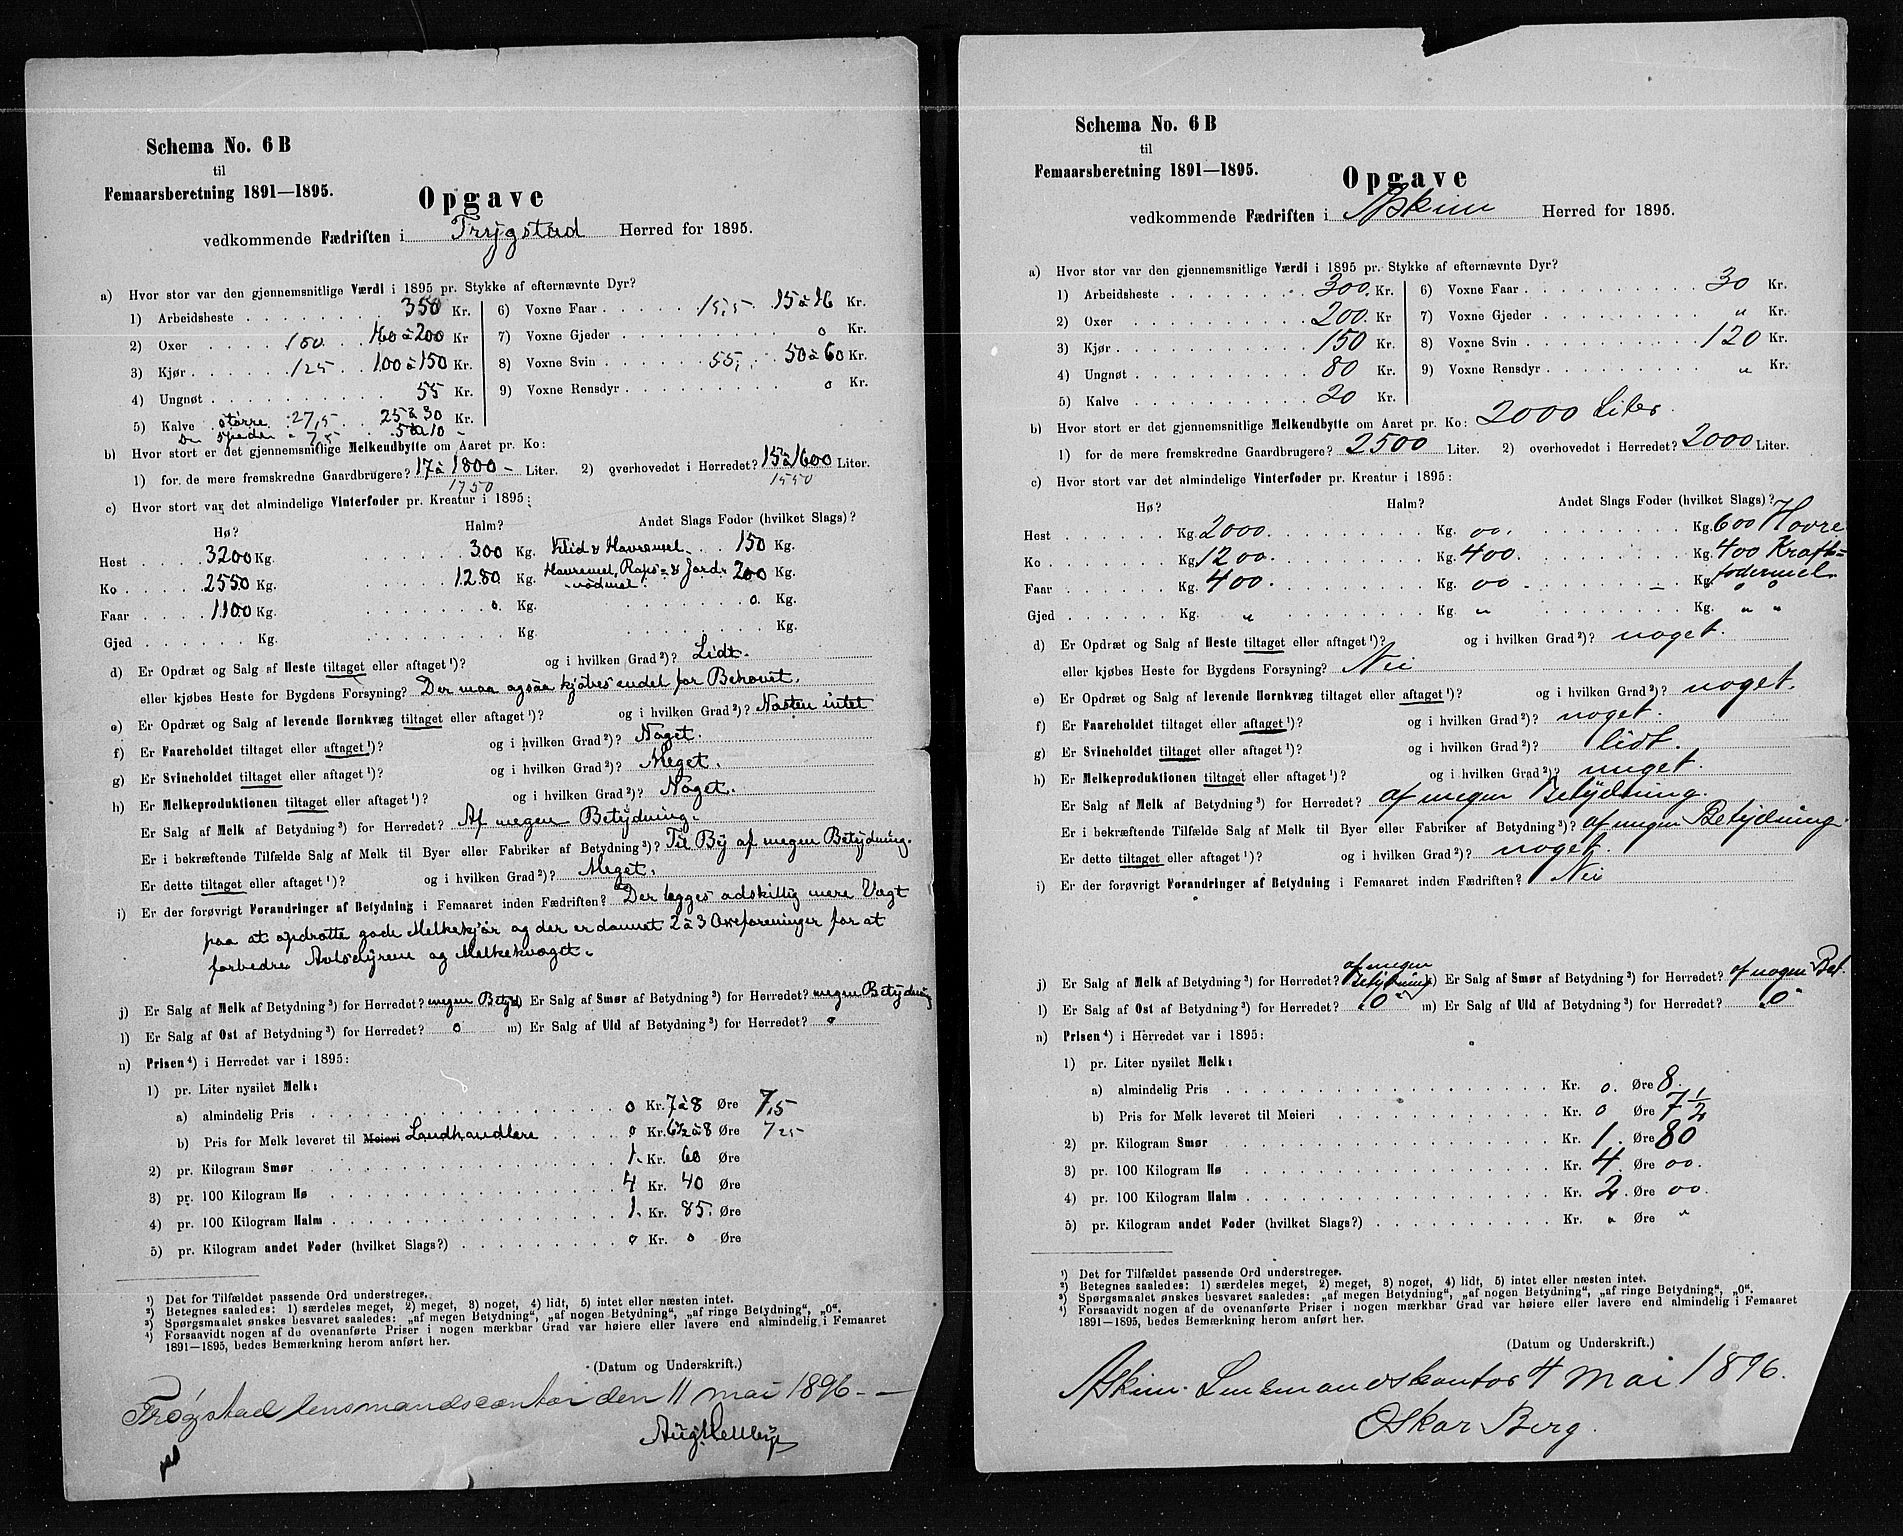 Schema No. 6 B
til
Femaarsberetning 1891—1895.
Opgave
vedkommende Fædriften i Trygstad Herred for 1895.
a) Hvor stor var den gjennemsnitlige Værdi i 1895 pr. Stykke af efternævnte Dyr?
1) Arbeidsheste 350 Kr.
2) Oxer 180 160 à 200 Kr
3) Kjør 125 100 à 150 Kr.
4) Ungnøt 55 Kr.
5) Kalve større 27,5 25 à 30 Kr.
De spæde 7,5 5 à 10 -
6) Voxne Faar 15,5 15 à 16 Kr.
7) Voxne Gjeder 0 Kr.
8) Voxne Svin 55, 50 à 60 Kr.
9) Voxne Rensdyr 0 Kr.
b) Hvor stort er det gjennemsnitlige Melkeudbytte om Aaret pr. Ko:
1) for de mere fremskredne Gaardbrugere? 17 à 1800 - Liter. 2) overhovedet i Herredet? 15 à 1600 Liter.
1750 1550
c) Hvor stort var det almindelige Vinterfoder pr. Kreatur i 1895:
Hø? Halm? Andet Slags Foder (hvilket Slags)?
Hest 3200 Kg. 300 Kg. Klid & Havremel 150 Kg.
Ko 2550 Kg. 1280 Kg. Havremel, Raps- & Jord- 200 Kg.
nødmel.
Faar 1100 Kg. 0 Kg. 0. Kg.
Gjed Kg. Kg. Kg.
d) Er Opdræt og Salg af Heste tiltaget eller aftaget ¹)? og i hvilken Grad ²)? Lidt.
eller kjøbes Heste for Bygdens Forsyning? Der maa ogsaa kjøbes endel for Behovet.
e) Er Opdræt og Salg af levende Hornkvæg tiltaget eller aftaget ¹)? og i hvilken Grad ²)? Næsten intet
f) Er Faareholdet tiltaget eller aftaget ¹)? og i hvilken Grad ²)? Noget.
g) Er Svineholdet tiltaget eller aftaget ¹)? og i hvilken Grad ²)? Meget.
h) Er Melkeproduktionen tiltaget eller aftaget ¹)? og i hvilken Grad ²)? Noget.
Er Salg af Melk af Betydning ³) for Herredet? Af megen Betydning.
Er i bekræftende Tilfælde Salg af Melk til Byer eller Fabriker af Betydning ³)? Til By af megen Betydning.
Er dette tiltaget eller aftaget ¹)? og i hvilken Grad ²)? Meget.
i) Er der forøvrigt Forandringer af Betydning i Femaaret inden Fædriften? Der lægges adskillig mere Vægt
paa at opdrætte gode Melkekjør og der er dannet 2 à 3 Oxeforeninger for at
forbedre Avlsdyrene og Melkekvæget.
j) Er Salg af Melk af Betydning ³) for Herredet? megen Betyd) Er Salg af Smør af Betydning ³) for Herredet? megen Betydning
l) Er Salg af Ost af Betydning ³) for Herredet? 0 m) Er Salg af Uld af Betydning ³) for Herredet? 0
n) Prisen ⁴) i Herredet var i 1895:
1) pr. Liter nysilet Melk:
a) almindelig Pris 0 Kr. 7 à 8 Øre 7,5
b) Pris for Melk leveret til Meieri Landhandlere 0 Kr. 6½ à 8 Øre 7 25
2) pr. Kilogram Smør 1. Kr. 60 Øre
3) pr. 100 Kilogram Hø 4 Kr. 40 Øre
4) pr. 100 Kilogram Halm 1. Kr. 85. Øre
5) pr. Kilogram andet Foder (hvilket Slags?) 0 Kr. 0 Øre
¹) Det for Tilfældet passende Ord understreges.
²) Betegnes saaledes: 1) særdeles meget, 2) meget, 3) noget, 4) lidt, 5) intet eller næsten intet.
³) Spørgsmaalet ønskes besvaret saaledes: „af megen Betydning“, „af nogen Betydning“, „af ringe Betydning“, „0“.
⁴) Forsaavidt nogen af de ovenanførte Priser i nogen mærkbar Grad var høiere eller lavere end almindelig i Femaaret
1891—1895, bedes Bemærkning herom anført her.
(Datum og Underskrift.)
Trøgstad lensmandscontor den 11 mai 1896
Schema No. 6 B
til
Femaarsberetning 1891—1895.
Opgave
vedkommende Fædriften i Askim Herred for 1895.
a) Hvor stor var den gjennemsnitlige Værdi i 1895 pr. Stykke af efternævnte Dyr?
1) Arbeidsheste 300. Kr.
2) Oxer 200. Kr
3) Kjør 150 Kr.
4) Ungnøt 80 Kr.
5) Kalve 20 Kr.
6) Voxne Faar 30 Kr.
7) Voxne Gjeder " Kr.
8) Voxne Svin 120 Kr.
9) Voxne Rensdyr " Kr.
b) Hvor stort er det gjennemsnitlige Melkeudbytte om Aaret pr. Ko: 2000 Liter.
1) for de mere fremskredne Gaardbrugere? 2500 Liter. 2) overhovedet i Herredet? 2000 Liter.
c) Hvor stort var det almindelige Vinterfoder pr. Kreatur i 1895:
Hø? Halm? Andet Slags Foder (hvilket Slags)?
Hest Kg. 2000. Kg. 00. Kg. 600 Havre
Ko Kg. 1200. Kg. 400. Kg. 400 Kraft=
Faar Kg. 400. Kg. 00 - - Kg. fodermel.
Gjed Kg. " Kg. " Kg. " "
d) Er Opdræt og Salg af Heste tiltaget eller aftaget ¹)? og i hvilken Grad ²)? noget.
eller kjøbes Heste for Bygdens Forsyning? Nei
e) Er Opdræt og Salg af levende Hornkvæg tiltaget eller aftaget ¹)? og i hvilken Grad ²)? noget.
f) Er Faareholdet tiltaget eller aftaget ¹)? og i hvilken Grad ²)? noget.
g) Er Svineholdet tiltaget eller aftaget ¹)? og i hvilken Grad ²)? lidt.
h) Er Melkeproduktionen tiltaget eller aftaget ¹)? og i hvilken Grad ²)? meget.
Er Salg af Melk af Betydning ³) for Herredet? af megen Betydning.
Er i bekræftende Tilfælde Salg af Melk til Byer eller Fabriker af Betydning ³)? af megen Betydning.
Er dette tiltaget eller aftaget ¹)? og i hvilken Grad ²)? noget.
i) Er der forøvrigt Forandringer af Betydning i Femaaret inden Fædriften? Nei
af megen
j) Er Salg af Melk af Betydning ³) for Herredet? Betydning) Er Salg af Smør af Betydning ³) for Herredet? af nogen Bet.
l) Er Salg af Ost af Betydning ³) for Herredet? "0" m) Er Salg af Uld af Betydning ³) for Herredet? "0"
n) Prisen ⁴) i Herredet var i 1895:
1) pr. Liter nysilet Melk:
a) almindelig Pris Kr. 0. Øre 8.
b) Pris for Melk leveret til Meieri Kr. 0 Øre 7 ½
2) pr. Kilogram Smør Kr. 1. Øre 80
3) pr. 100 Kilogram Hø Kr. 4. Øre 00.
4) pr. 100 Kilogram Halm Kr. 2. Øre 00.
5) pr. Kilogram andet Foder (hvilket Slags?) Kr. " Øre "
¹) Det for Tilfældet passende Ord understreges.
²) Betegnes saaledes: 1) særdeles meget, 2) meget, 3) noget, 4) lidt, 5) intet eller næsten intet.
³) Spørgsmaalet ønskes besvaret saaledes: „af megen Betydning“, „af nogen Betydning“, „af ringe Betydning“, „0“.
⁴) Forsaavidt nogen af de ovenanførte Priser i nogen mærkbar Grad var høiere eller lavere end almindelig i Femaaret
1891—1895, bedes Bemærkning herom anført her.
(Datum og Underskrift.)
Askim Lensmandskontor 4 Mai 1896.
Oskar Berg.